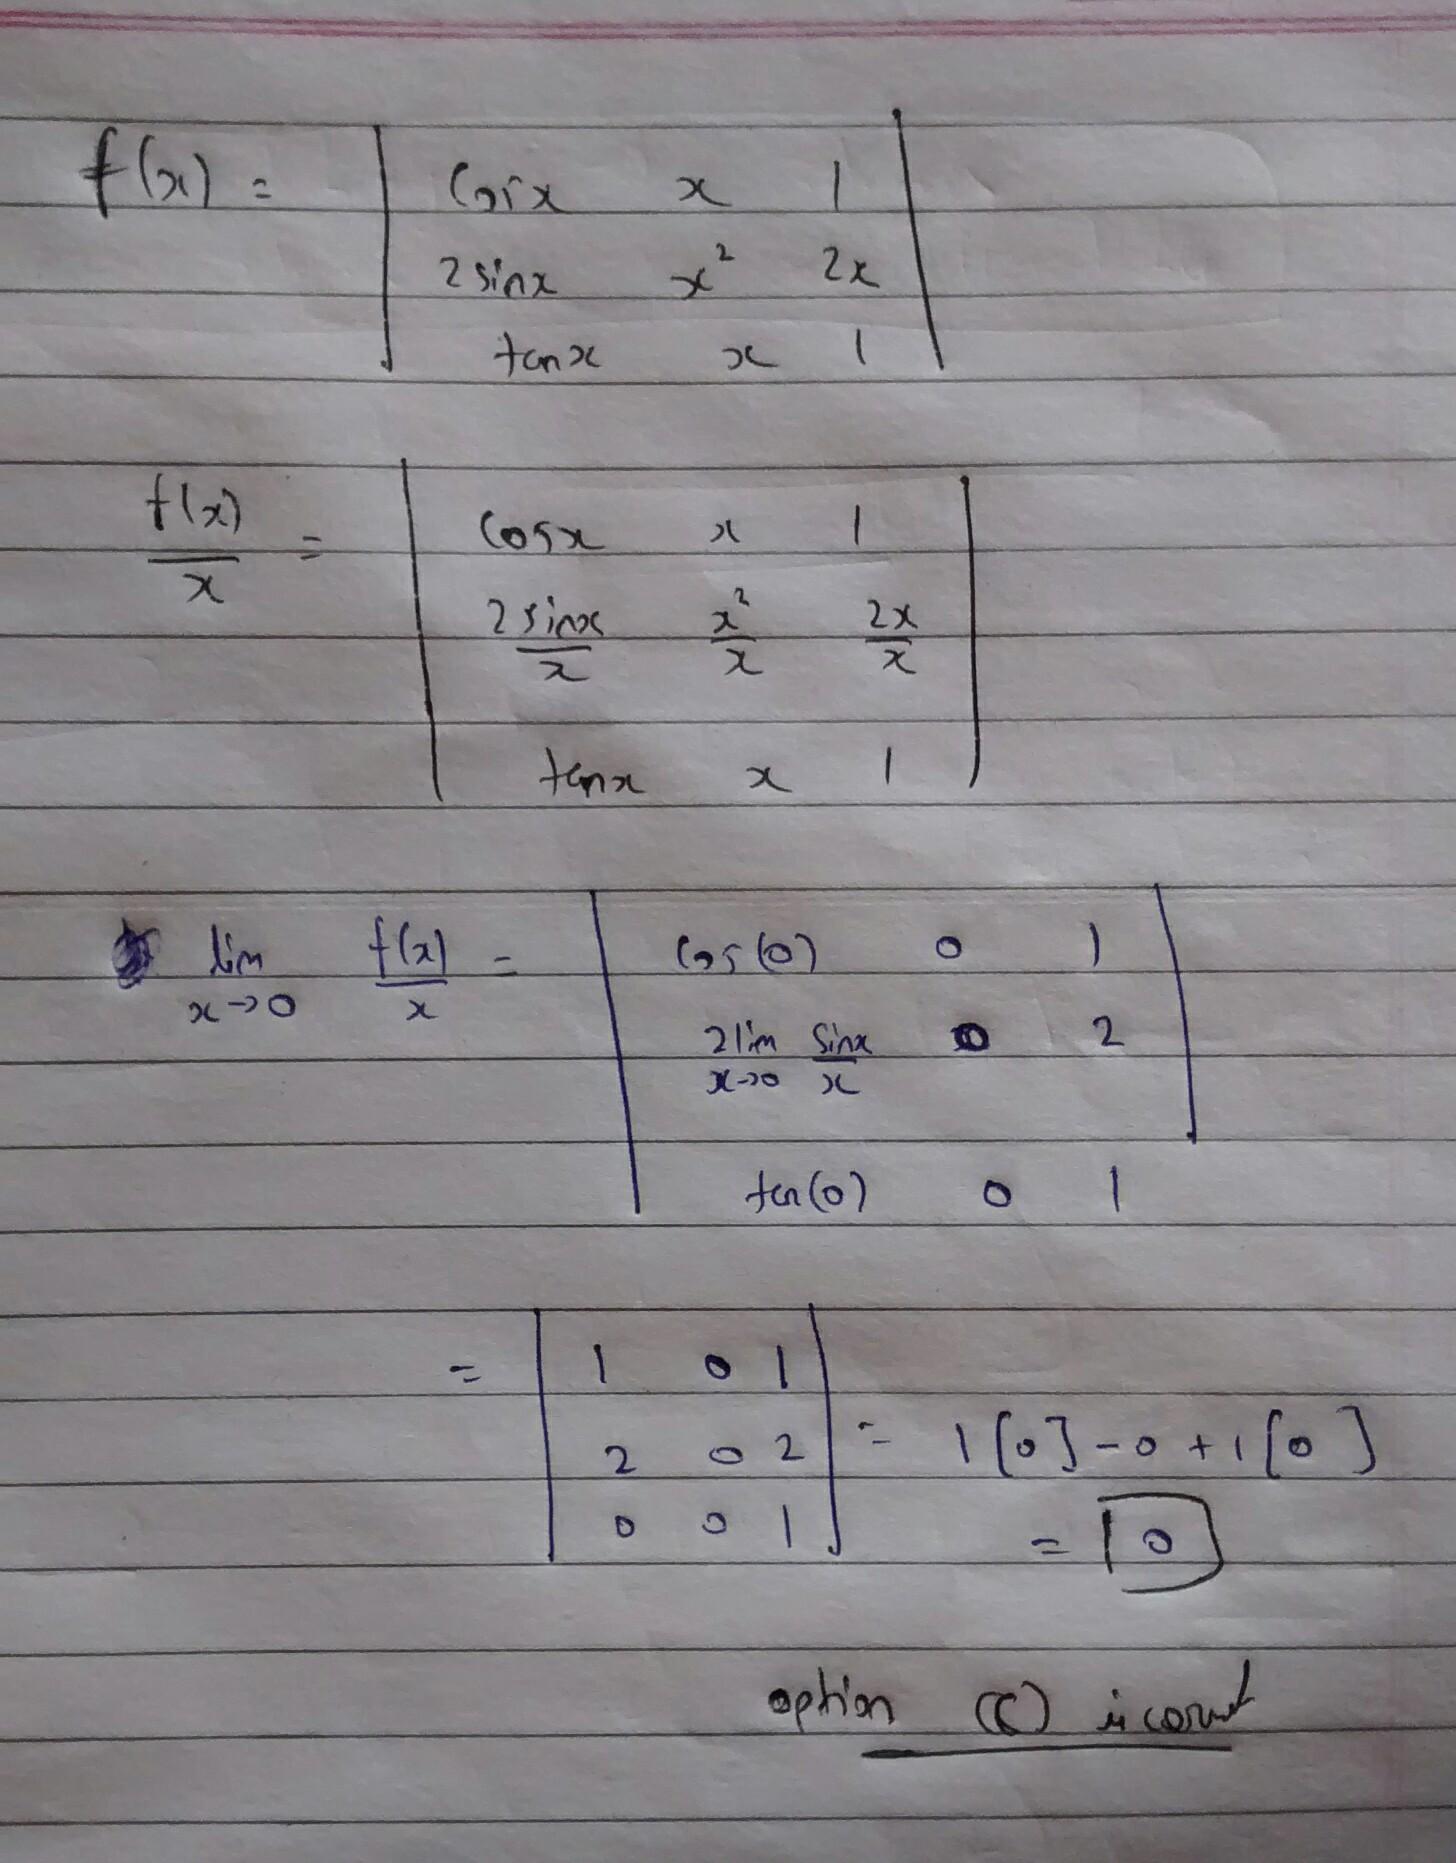 f(x) = | cosx x 1 |
| 2 sinx x² 2x |
| tanx x 1 |
f(x)/x = | cosx x 1 |
| 2 sinx/x x²/x 2x/x |
| tanx x 1 |
lim x→0 f(x)/x = | cos(0) 0 1 |
| 2 lim x→0 sinx/x 0 2 |
| tan(0) 0 1 |
= | 1 0 1 |
| 2 0 2 | = 1[0] - 0 + 1[0]
| 0 0 1 |
= 0
option (C) is correct